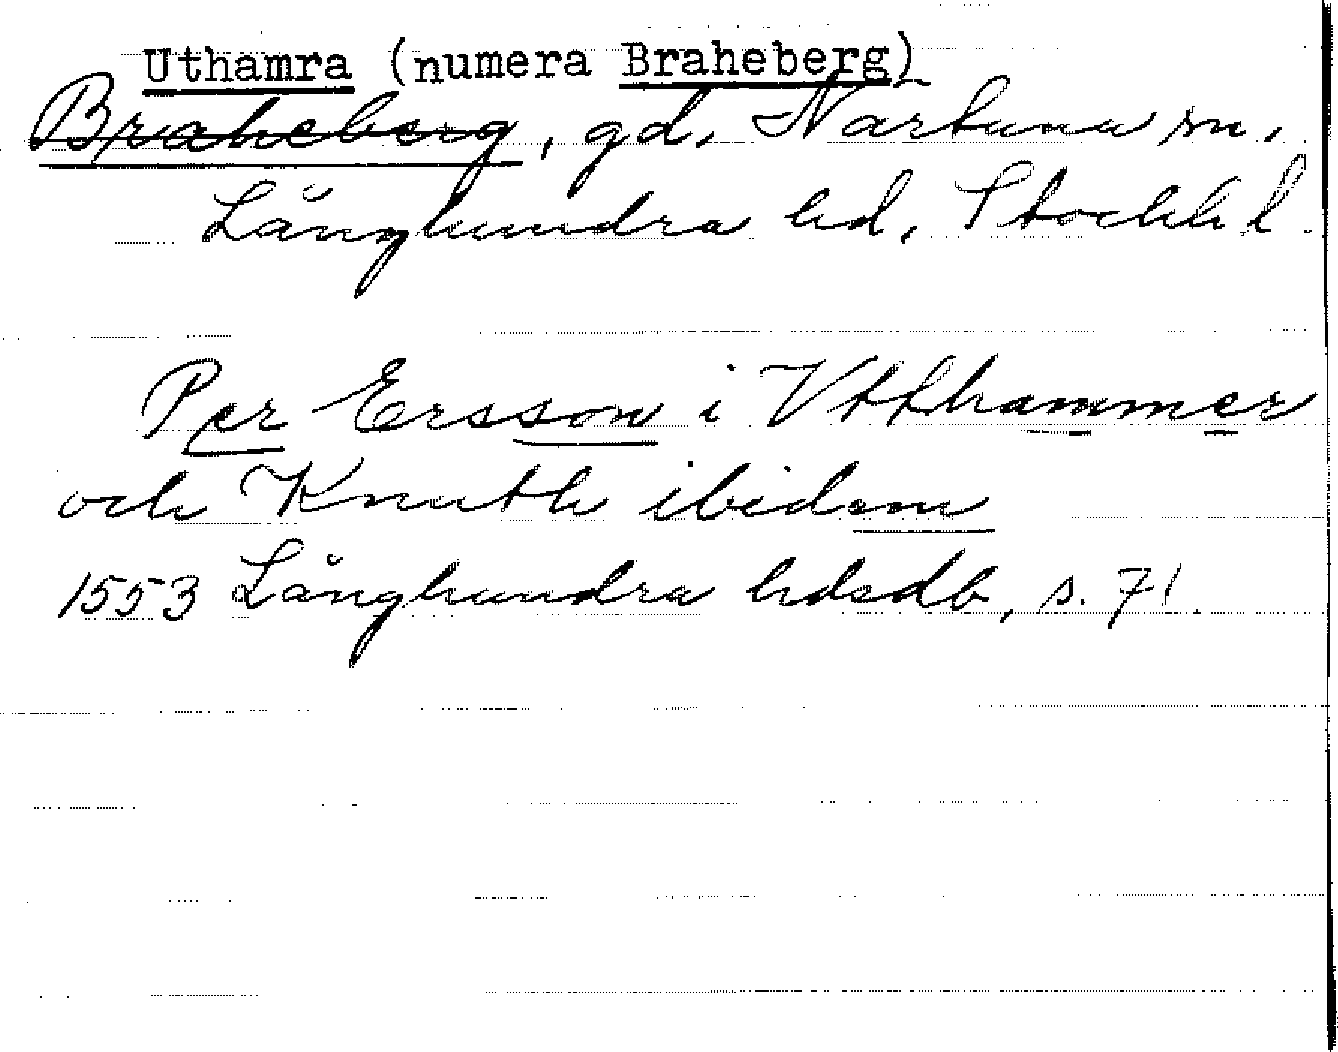 Uthamra (numera Braheberg)
Braheberg, gd, Närtuna sn,
Långhundra hd, Stockh l.
Per Ersson i Vtthammer
och Knuth ibidem
1553 Långhundra hdsdb, s. 71.